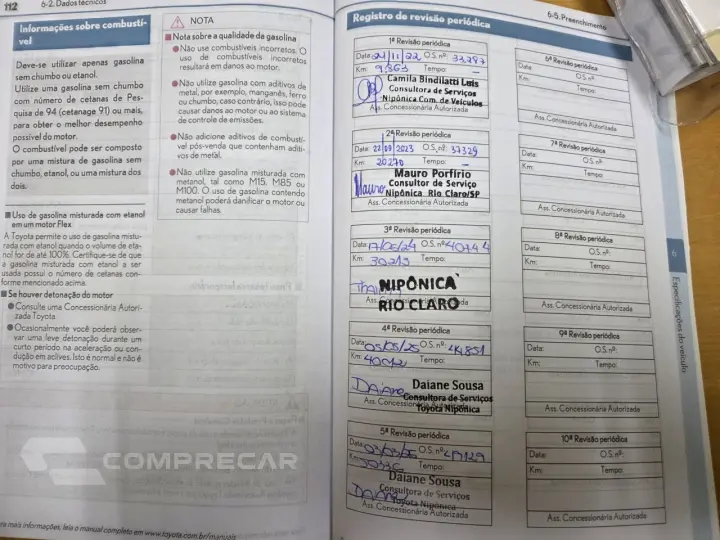 112
6-2. Dados técnicos
Informações sobre combustí-
vel
Deve-se utilizar apenas gasolina
sem chumbo ou etanol.
Utilize uma gasolina sem chumbo
com número de cetanas de Pes-
quisa de 94 (cetenage 91) ou mais,
para obter o melhor desempenho
possível do motor.
O combustível pode ser composto
por uma mistura de gasolina sem
chumbo, etanol, ou uma mistura dos
dois.
Uso de gasolina misturada com etanol
em um motor Flex
A Toyota permite o uso de gasolina mistu-
rada com etanol quando o volume de eta-
nol for de até 100%. Certifique-se de que
a gasolina misturada com etanol a ser
usada possui o número de cetanas con-
forme mencionado acima.
Se houver detonação do motor
Consulte uma Concessionária Autori-
zada Toyota.
Ocasionalmente você poderá obser-
var uma leve detonação durante um
curto período na aceleração ou con-
dução em aclives. Isto é normal e não é
motivo para preocupação.
NOTA
Nota sobre a qualidade da gasolina
Não use combustíveis incorretos. O
uso de combustíveis incorretos
resultará em danos ao motor.
Não utilize gasolina com aditivos de
metal, por exemplo, manganês, ferro
ou chumbo, caso contrário, isso pode
causar danos ao motor ou ao sistema
de controle de emissões.
Não adicione aditivos de combustí-
vel pós-venda que contenham aditi-
vos de metal.
Não utilize gasolina misturada com
metanol, tal como M15, M85 ou
M100. O uso de gasolina contendo
metanol poderá danificar o motor ou
causar falhas.
COMPRECAR
ra mais informações, leia o manual completo em www.toyota.com.br/manuais
6-5. Preenchimento
Registro de revisão periódica
1ª Revisão periódica
Data: 21/11/22 O.S. nº: 33.287
Km: 9.863 Tempo: –
Camila Bindilatti Leis
Consultora de Serviços
Nipônica Com. de Veículos
Ass. Concessionária Autorizada
2ª Revisão periódica
Data: 22/09/2023 O.S. nº: 37329
Km: 20270 Tempo: –
Mauro
Mauro Porfirio
Consultor de Serviço
Nipônica Rio Claro/SP
Ass. Concessionária Autorizada
3ª Revisão periódica
Data: 17/05/24 O.S. nº: 40744
Km: 30219 Tempo:
NIPÔNICA
RIO CLARO
Ass. Concessionária Autorizada
4ª Revisão periódica
Data: 05/05/25 O.S. nº: 44851
Km: Tempo:
Daiane
Daiane Sousa
Consultora de Serviços
Toyota Nipônica
Ass. Concessionária Autorizada
5ª Revisão periódica
Data: O.S. nº: 49129
Km: Tempo:
Daiane
Daiane Sousa
Consultora de Serviços
Toyota Nipônica
Ass. Concessionária Autorizada
6ª Revisão periódica
Data: O.S. nº:
Km: Tempo:
Ass. Concessionária Autorizada
7ª Revisão periódica
Data: O.S. nº:
Km: Tempo:
Ass. Concessionária Autorizada
8ª Revisão periódica
Data: O.S. nº:
Km: Tempo:
Ass. Concessionária Autorizada
9ª Revisão periódica
Data: O.S. nº:
Km: Tempo:
Ass. Concessionária Autorizada
10ª Revisão periódica
Data: O.S. nº:
Km: Tempo:
Ass. Concessionária Autorizada
6
Especificações do veículo